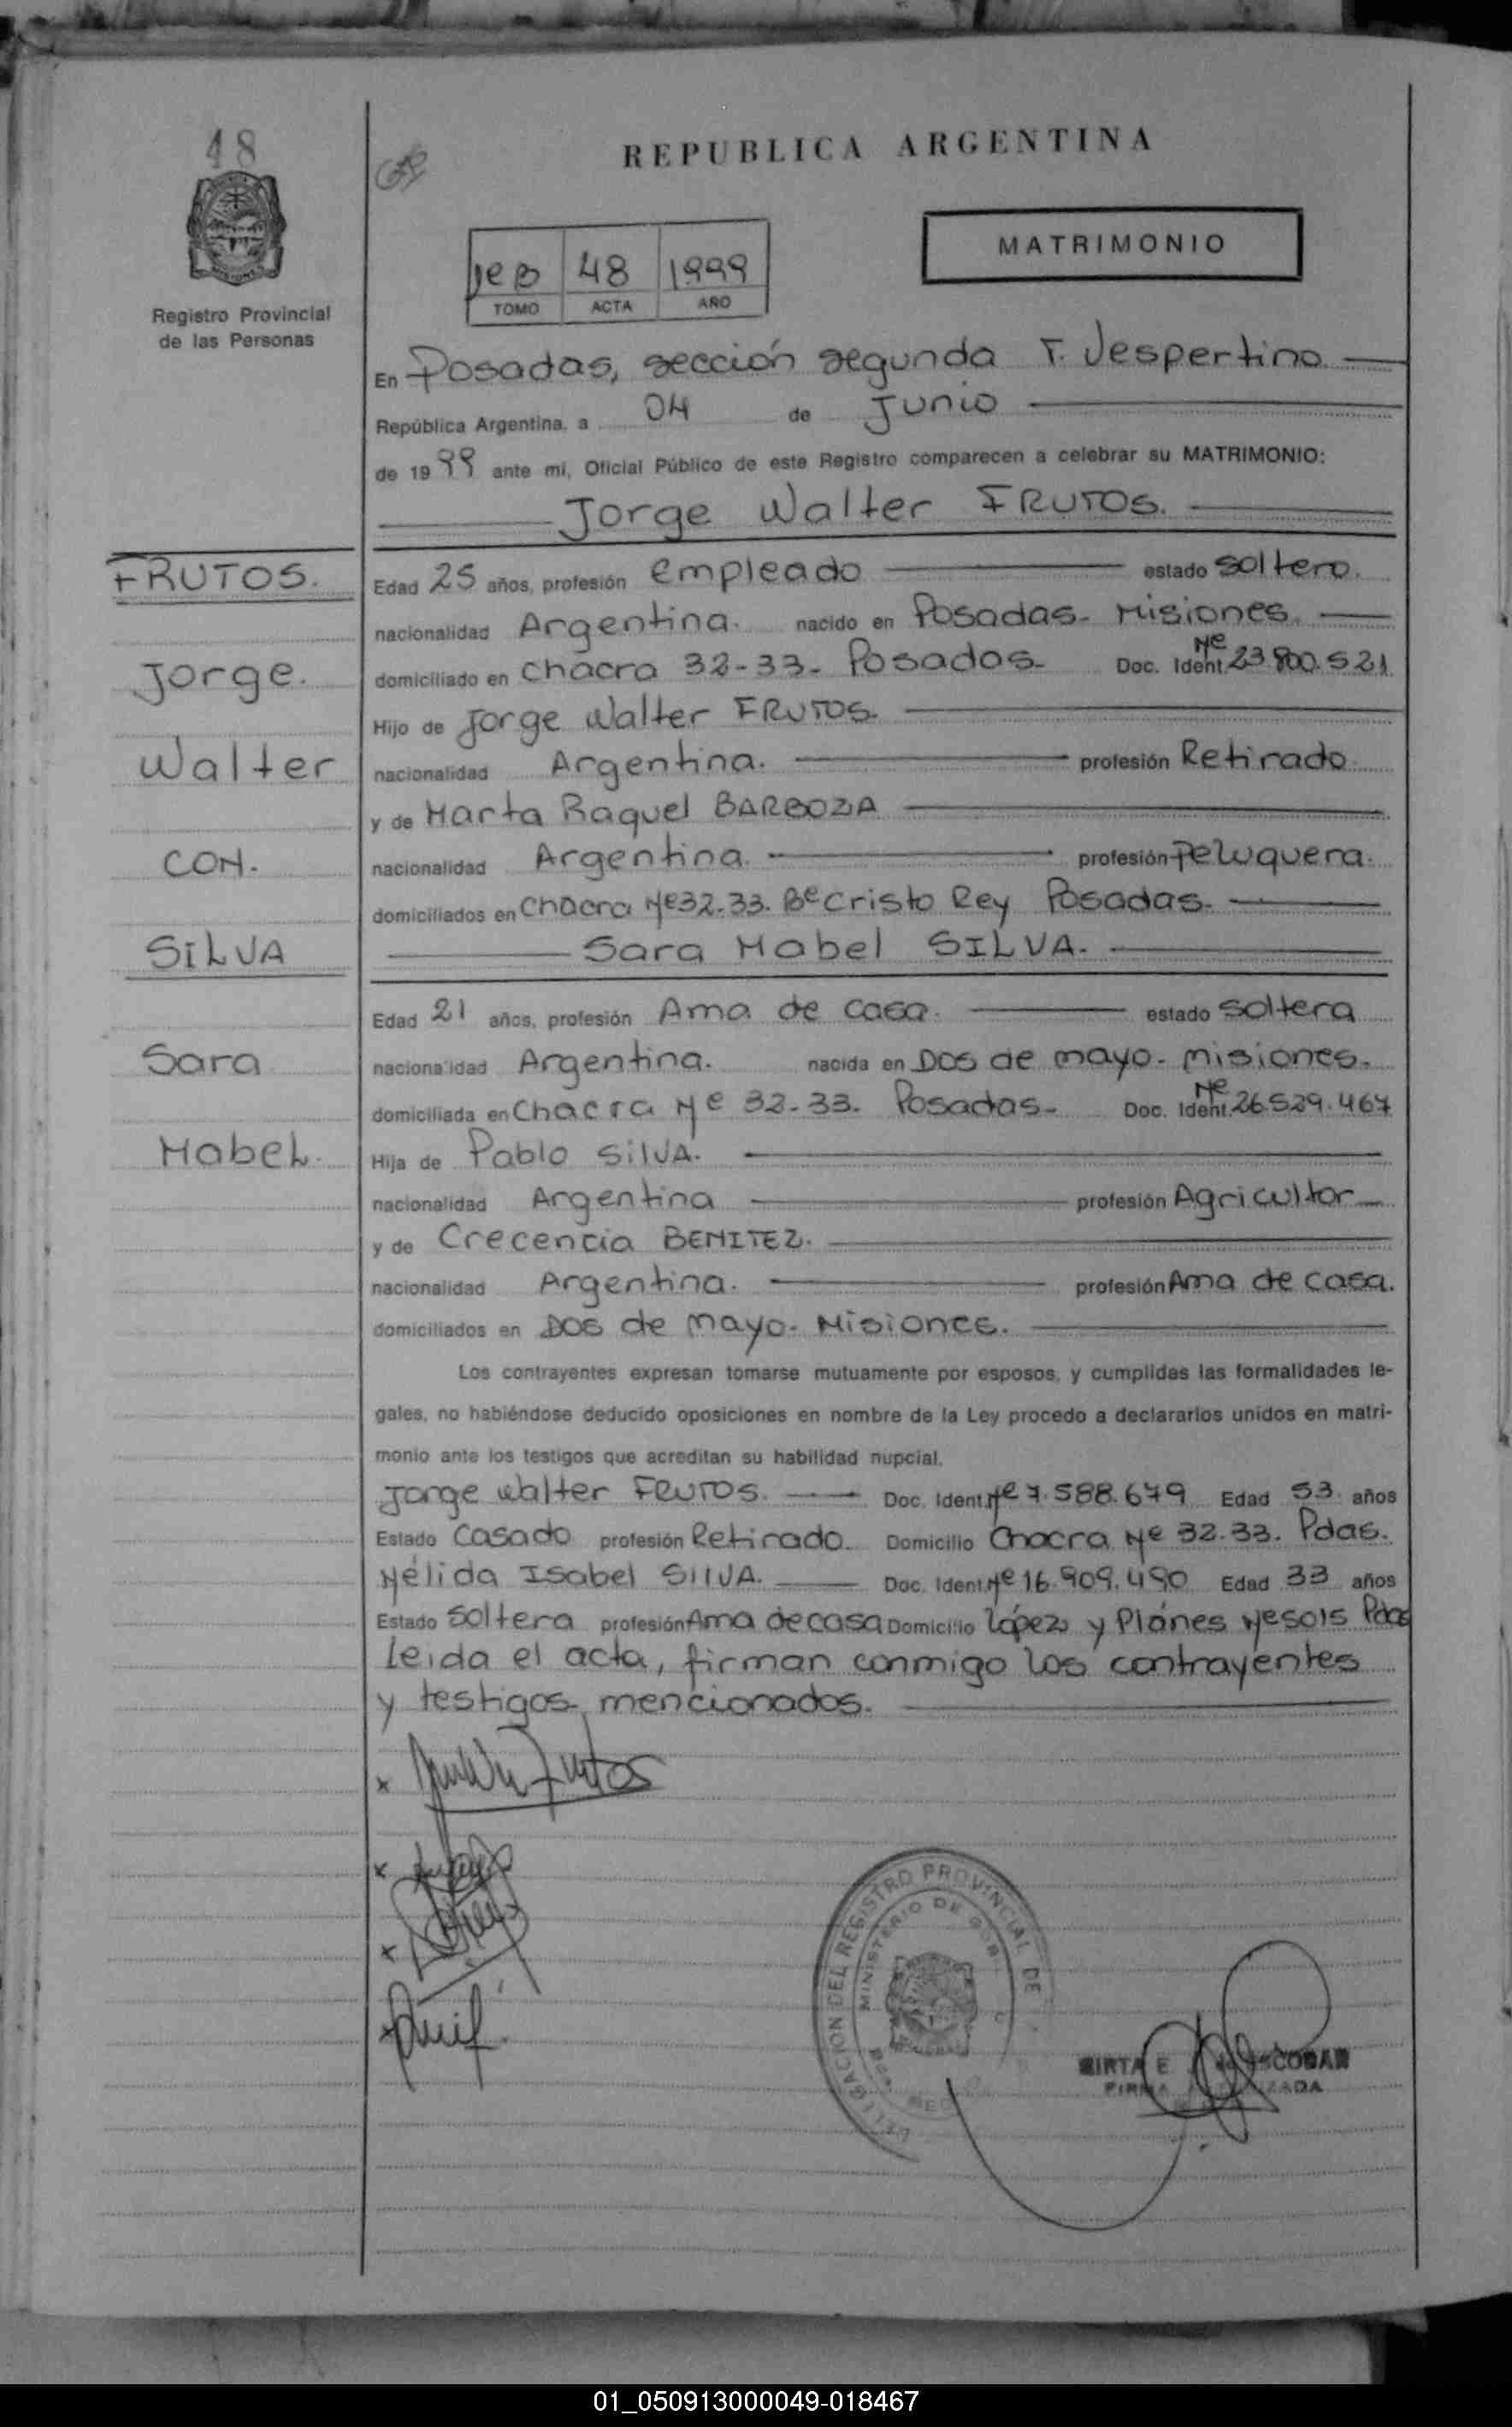 48
REPUBLICA ARGENTINA
MATRIMONIO
1º B 48 1999
TOMO ACTA AÑO
Registro Provincial
de las Personas
En Posadas, sección segunda T. Vespertino.
República Argentina, a 04 de Junio
de 1999 ante mí, Oficial Público de este Registro comparecen a celebrar su MATRIMONIO:
Jorge Walter FRUTOS.
FRUTOS.
Jorge.
Walter
CON.
SILVA
Sara
Mabel.
Edad 25 años, profesión empleado estado soltero.
nacionalidad Argentina. nacido en Posadas- Misiones.
domiciliado en Chacra 32-33- Posadas- Doc. Ident. Nº 23.800.521
Hijo de Jorge Walter FRUTOS.
nacionalidad Argentina. profesión Retirado.
y de Marta Raquel BARBOZA
nacionalidad Argentina. profesión Peluquera.
domiciliados en Chacra Nº 32.33. Bº Cristo Rey Posadas-
Sara Mabel SILVA.
Edad 21 años, profesión Ama de casa. estado soltera
nacionalidad Argentina. nacida en Dos de mayo- misiones.
domiciliada en Chacra Nº 32-33. Posadas- Doc. Ident. Nº 26.529.467
Hija de Pablo SILVA.
nacionalidad Argentina profesión Agricultor
y de Crecencia BENITEZ.
nacionalidad Argentina. profesión Ama de casa.
domiciliados en Dos de mayo- Misiones.
Los contrayentes expresan tomarse mutuamente por esposos, y cumplidas las formalidades le-
gales, no habiéndose deducido oposiciones en nombre de la Ley procedo a declararlos unidos en matri-
monio ante los testigos que acreditan su habilidad nupcial.
Jorge Walter FRUTOS. Doc. Ident. Nº 7.588.679 Edad 53. años
Estado Casado profesión Retirado. Domicilio Chacra Nº 32.33. Pdas.
Nélida Isabel SILVA. Doc. Ident. Nº 16.909.490 Edad 33 años
Estado Soltera profesión Ama de casa Domicilio López y Planes Nº 5015 Pdas
Leida el acta, firman conmigo los contrayentes
y testigos mencionados.
Frutos
DELEGACION DEL REGISTRO PROVINCIAL DE
MINISTERIO DE GOB
MIRTA E ESCOBAR
FIRMA AUTORIZADA
01_050913000049-018467